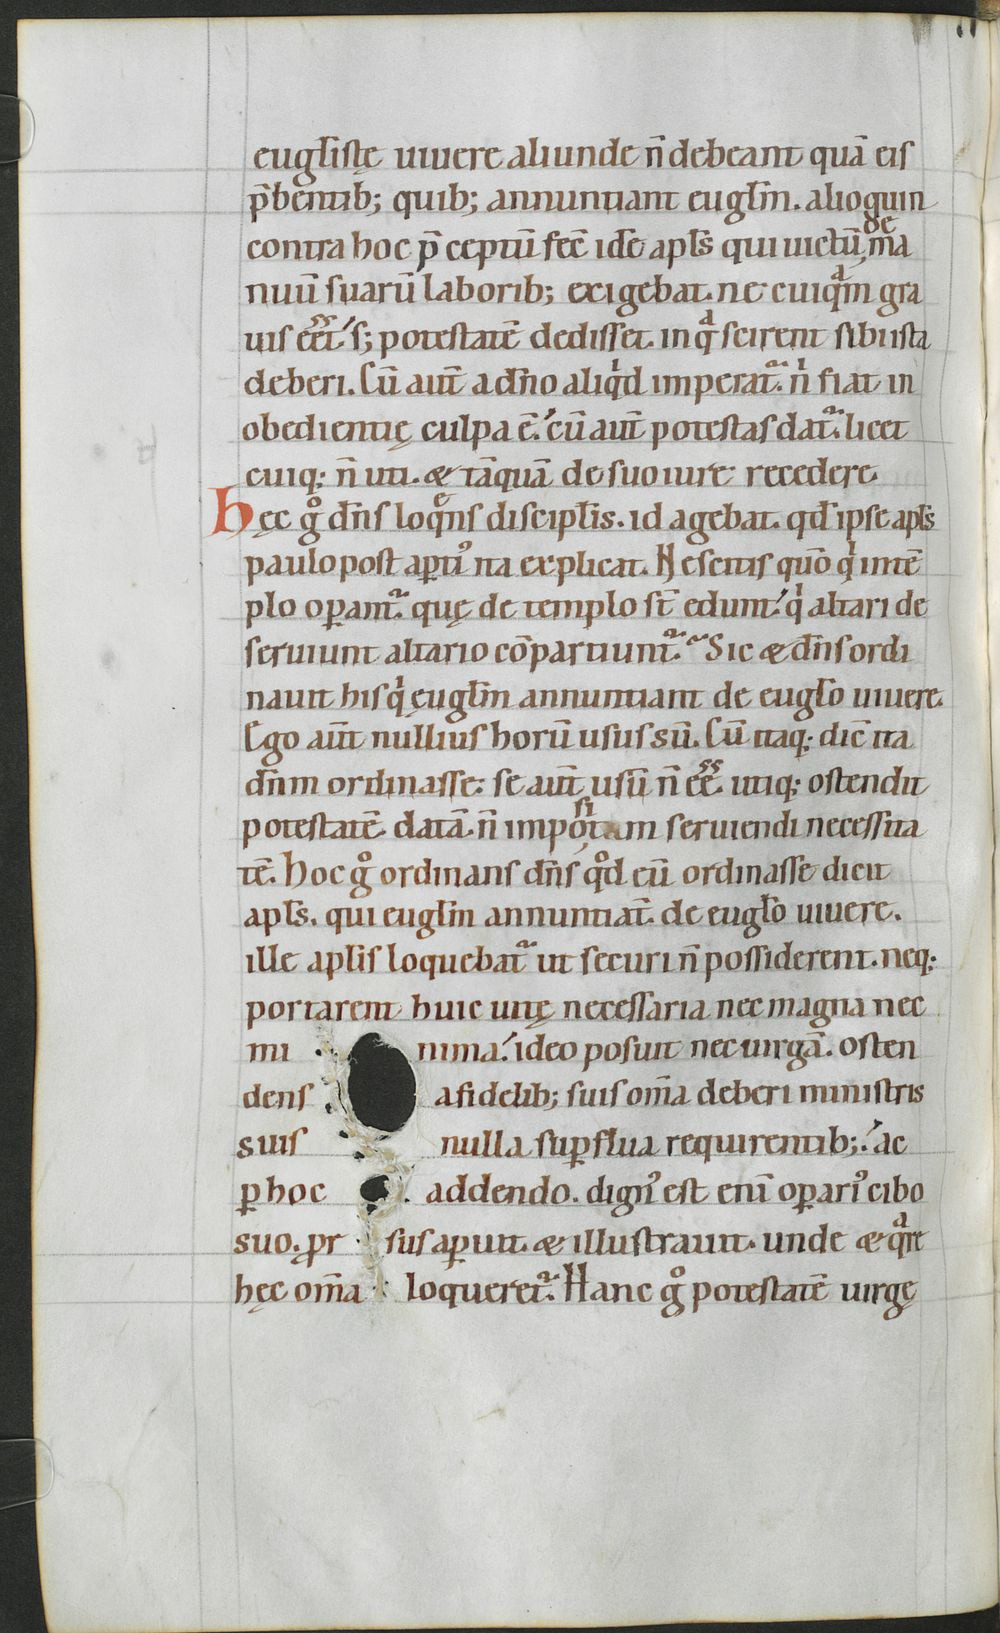 eugl̄istę uiuere aliunde n̄ debeant quā eis
p̄bentib; quib; annuntiant eugl̄m. alioquin
contra hoc p̄ceptū fec̄ idē apl̄s qui uictū de ma
nuū suarū laborib; exigebat. ne cuiqͣm gra
uis eēt. s; potestatē dedisset. in qͣ scirent sibi ista
deberi. Cū aut̄ a dn̄o aliqͥd imperat᷑. nͥ fiat in
obedientię culpa ē. cū aut̄ potestas dat᷑. licet
cuiq; n̄ uti. & tāquā de suo iure recedere
hęc gͦ dn̄s loqͤns discipl̄is. id agebat. qd̄ ipse apl̄s
paulo post aꝑtiꝰ ita explicat. Nescitis quō qͥ in tē
plo oꝑant᷑. quę de templo st̄ edunt. qͥ altari de
seruiunt altario cōpartiunt᷑. Sic & dn̄s ordi
nauit his qͥ eugl̄m annuntiant de eugl̄o uiuere.
Ego aut̄ nullius horū usus sū. Cū itaq; dic̄ ita
dn̄m ordinasse. se aut̄ usū n̄ eēͤ. utiq; ostendit
potestatē datā. n̄ impositam seruiendi necessita
tē. Hoc gͦ ordinans dn̄s qͦd eū ordinasse dicit
apl̄s. qui eugl̄m annuntiat̄. de eugl̄o uiuere.
ille aplis loquebat᷑ ut securi n̄ possiderent. neq;
portarent huic uitę necessaria nec magna nec
mi nima. ideo posuit nec uirgā. osten
dens a fidelib; suis om̄a deberi ministris
suis nulla suꝑflua requirentib;. ac
ꝑ hoc addendo. dignꝰ est enī oꝑariꝰ cibo
suo. ꝓr sus aꝑuit. & illustrauit. unde & qͣre
hęc om̄a loqueret᷑. Hanc gͦ potestatē uirgę